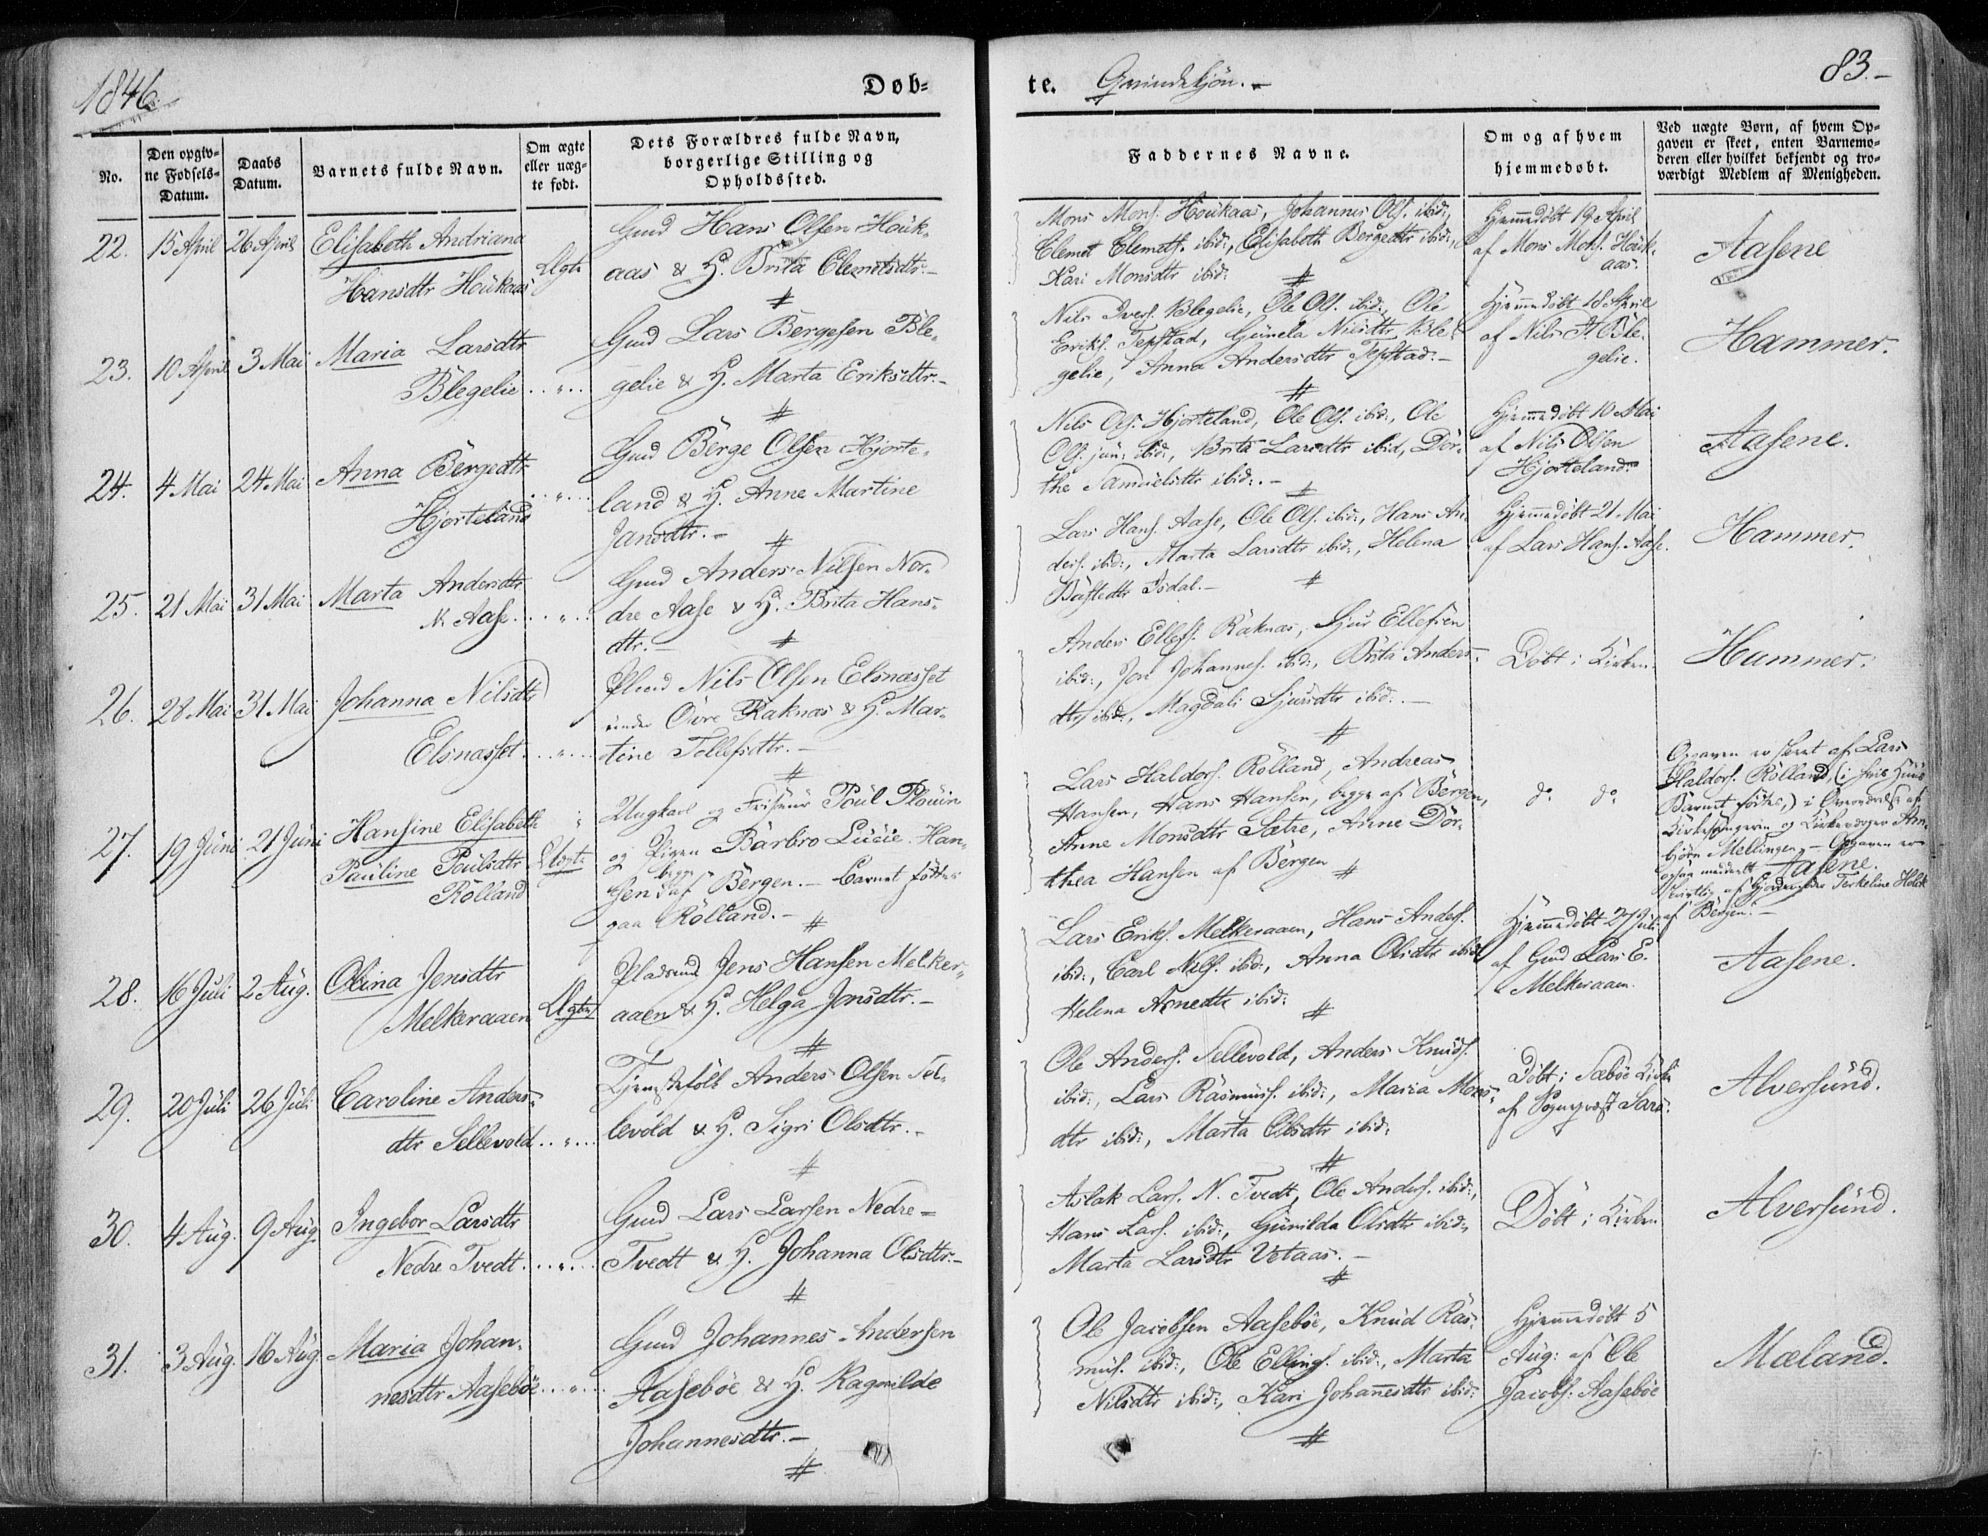 1846.
Døb-
te. Qvindekjøn.-
83.-
No.
Den opgiv-
ne Fødsels-
Datum.
Daabs
Datum.
Barnets fulde Navn.
Om ægte
eller uæg-
te født.
Dets Forældres fulde Navn,
borgerlige Stilling og
Opholdssted.
Faddernes Navne.
Om og af hvem
hjemmedøbt.
Ved uægte Børn, af hvem Op-
gaven er skeet, enten Barnemo-
deren eller hvilket bekjendt og tro-
værdigt Medlem af Menigheden.
22. 15 April 26 April Elisabeth Andriana
Hansdtr Houkaas
Ægte
Gmd Hans Olsen Houk-
aas & H. Brita Clemetsdtr.-
Mons Mons. Houkaas, Johannes Ols. ibid:,
Clemet Clemets. ibid:, Elisabeth Bergedtr ibid:,
Kari Monsdtr ibid:
Hjemmedøbt 19 April
af Mons Mons. Houk-
aas.
Aasene
23. 10 April 3 Mai Maria Larsdtr
Blegelie..„..
Gmd Lars Bergesen Ble-
gelie & H. Marta Eriksdtr.-
Nils Ivers. Blegelie, Ole Ols. ibid:, Ole
Eriks. Tepstad, Gunela Nilsdtr Ble-
gelie, Anna Andersdtr Tepstad.-
Hjemmedøbt 18 April
af Nils I. Ble-
gelie.
Hammer.
24. 4 Mai 24 Mai Anna Bergedtr
Hjorteland
..„..
Gmd Berge Olsen Hjorte-
land & H. Anne Martine
Jansdtr.-
Nils Ols. Hjorteland, Ole Ols. ibid:, Ole
Ols. jun: ibid:, Brita Larsdtr ibid, Dor-
the Samuelsdtr ibid:.-
Hjemmedøbt 10 Mai
af Nils Olsen
Hjorteland.
Aasene.
25. 21 Mai 31 Mai Marta Andersdtr
N. Aase...„..
Gmd Anders Nilsen Nor-
dre Aase & H. Brita Hans-
dtr.-
Lars Hans. Aase, Ole Ols. ibid:, Hans An-
ders. ibid:, Marta Larsdtr ibid:, Helena
Isdal.-
Hjemmedøbt 21 Mai
af Lars Hans. Aase.
Hammer.
26. 28 Mai 31 Mai Johanna Nilsdtr
Elsnæsset...„...
Nils Olsen Elsnæsset
under Øvre Raknæs & H. Mar-
tine Tollefsdtr.-
Anders Ellefs. Raknæs, Sjur Ellefsen
ibid:, Jon Johannes. ibid:, Brita Anders-
dtr ibid:, Magdali Sjursdtr ibid:.-
Døbt i Kirken.
Hammer.
27. 19 Juni 21 Juni Hansine Elisabeth
Pauline Poulsdtr
Rolland
Uægte
Ungkarl og Frisør Poul Plouin
og Pigen Barbro Lucie Han-
sen begge af Bergen.- Barnet født
paa Rolland.-
Lars Haldors. Rolland, Andreas
Hansen, Hans Hansen, begge af Bergen,
Anne Monsdtr Sætre, Anne Dor-
thea Hansen af Bergen
do do
Opgaven er skeet af Lars
Haldors. Rolland, (i hvis Huus
Barnet fødtes,) i Overværelse af
Kirkesangeren og Kirkeværger
Mellingen.- Opgaven er
ogsaa meddeelt
af Gjordemoder Terkeline Holck
af Bergen.-
Aasene.
28. 16 Juli 2 Aug. Olina Jensdtr
Melkeraaen
Ægte
Pladsmd Jens Hansen Melker-
aaen & H. Helga Jonsdtr.-
Lars Eriks. Melkeraaen, Hans Anders.
ibid:, Carl Nils. ibid:, Anna Olsdtr ibid
Helena Arnedtr ibid:
Hjemmedøbt 27 Juli
af Gmd Lars E.
Melkeraaen.
Aasene.
29. 20 Juli 26 Juli Caroline Anders-
dtr Sellevold..„...
Tjenstefolk Anders Olsen Sel-
levold & H. Sigri Olsdtr.-
Ole Anders. Sellevold, Anders Knuds.
ibid:, Lars Rasmus. ibid:, Maria Mons-
dtr ibid:, Marta Olsdtr ibid:
Døbt i Sæbøe Kirke
af Sognepræst Sars.
Alversund.
30. 4 Aug. 9 Aug. Ingebor Larsdtr
Nedre Tvedt...„...
Gmd Lars Larsen Nedre-
Tvedt & H. Johanna Olsdtr.-
Aslak Lars. N. Tvedt, Ole Anders. ibid:,
Hans Lars. ibid:, Gunilda Olsdtr ibid:,
Marta Larsdtr Vetaas.-
Døbt i Kirken
Alversund.
31. 3 Aug. 16 Aug. Maria Johan-
nesdtr Aasebøe...„...
Gmd Johannes Andersen
Aasebøe & H. Ragnilde
Johannesdtr.-
Ole Jacobsen Aasebøe, Knud Ras-
mus. ibid:, Ole Ellings. ibid:, Marta
Nilsdtr ibid:, Kari Johannesdtr ibid:
Hjemmedøbt 5
Aug: af Ole
Jacobs: Aasebøe
Mæland.